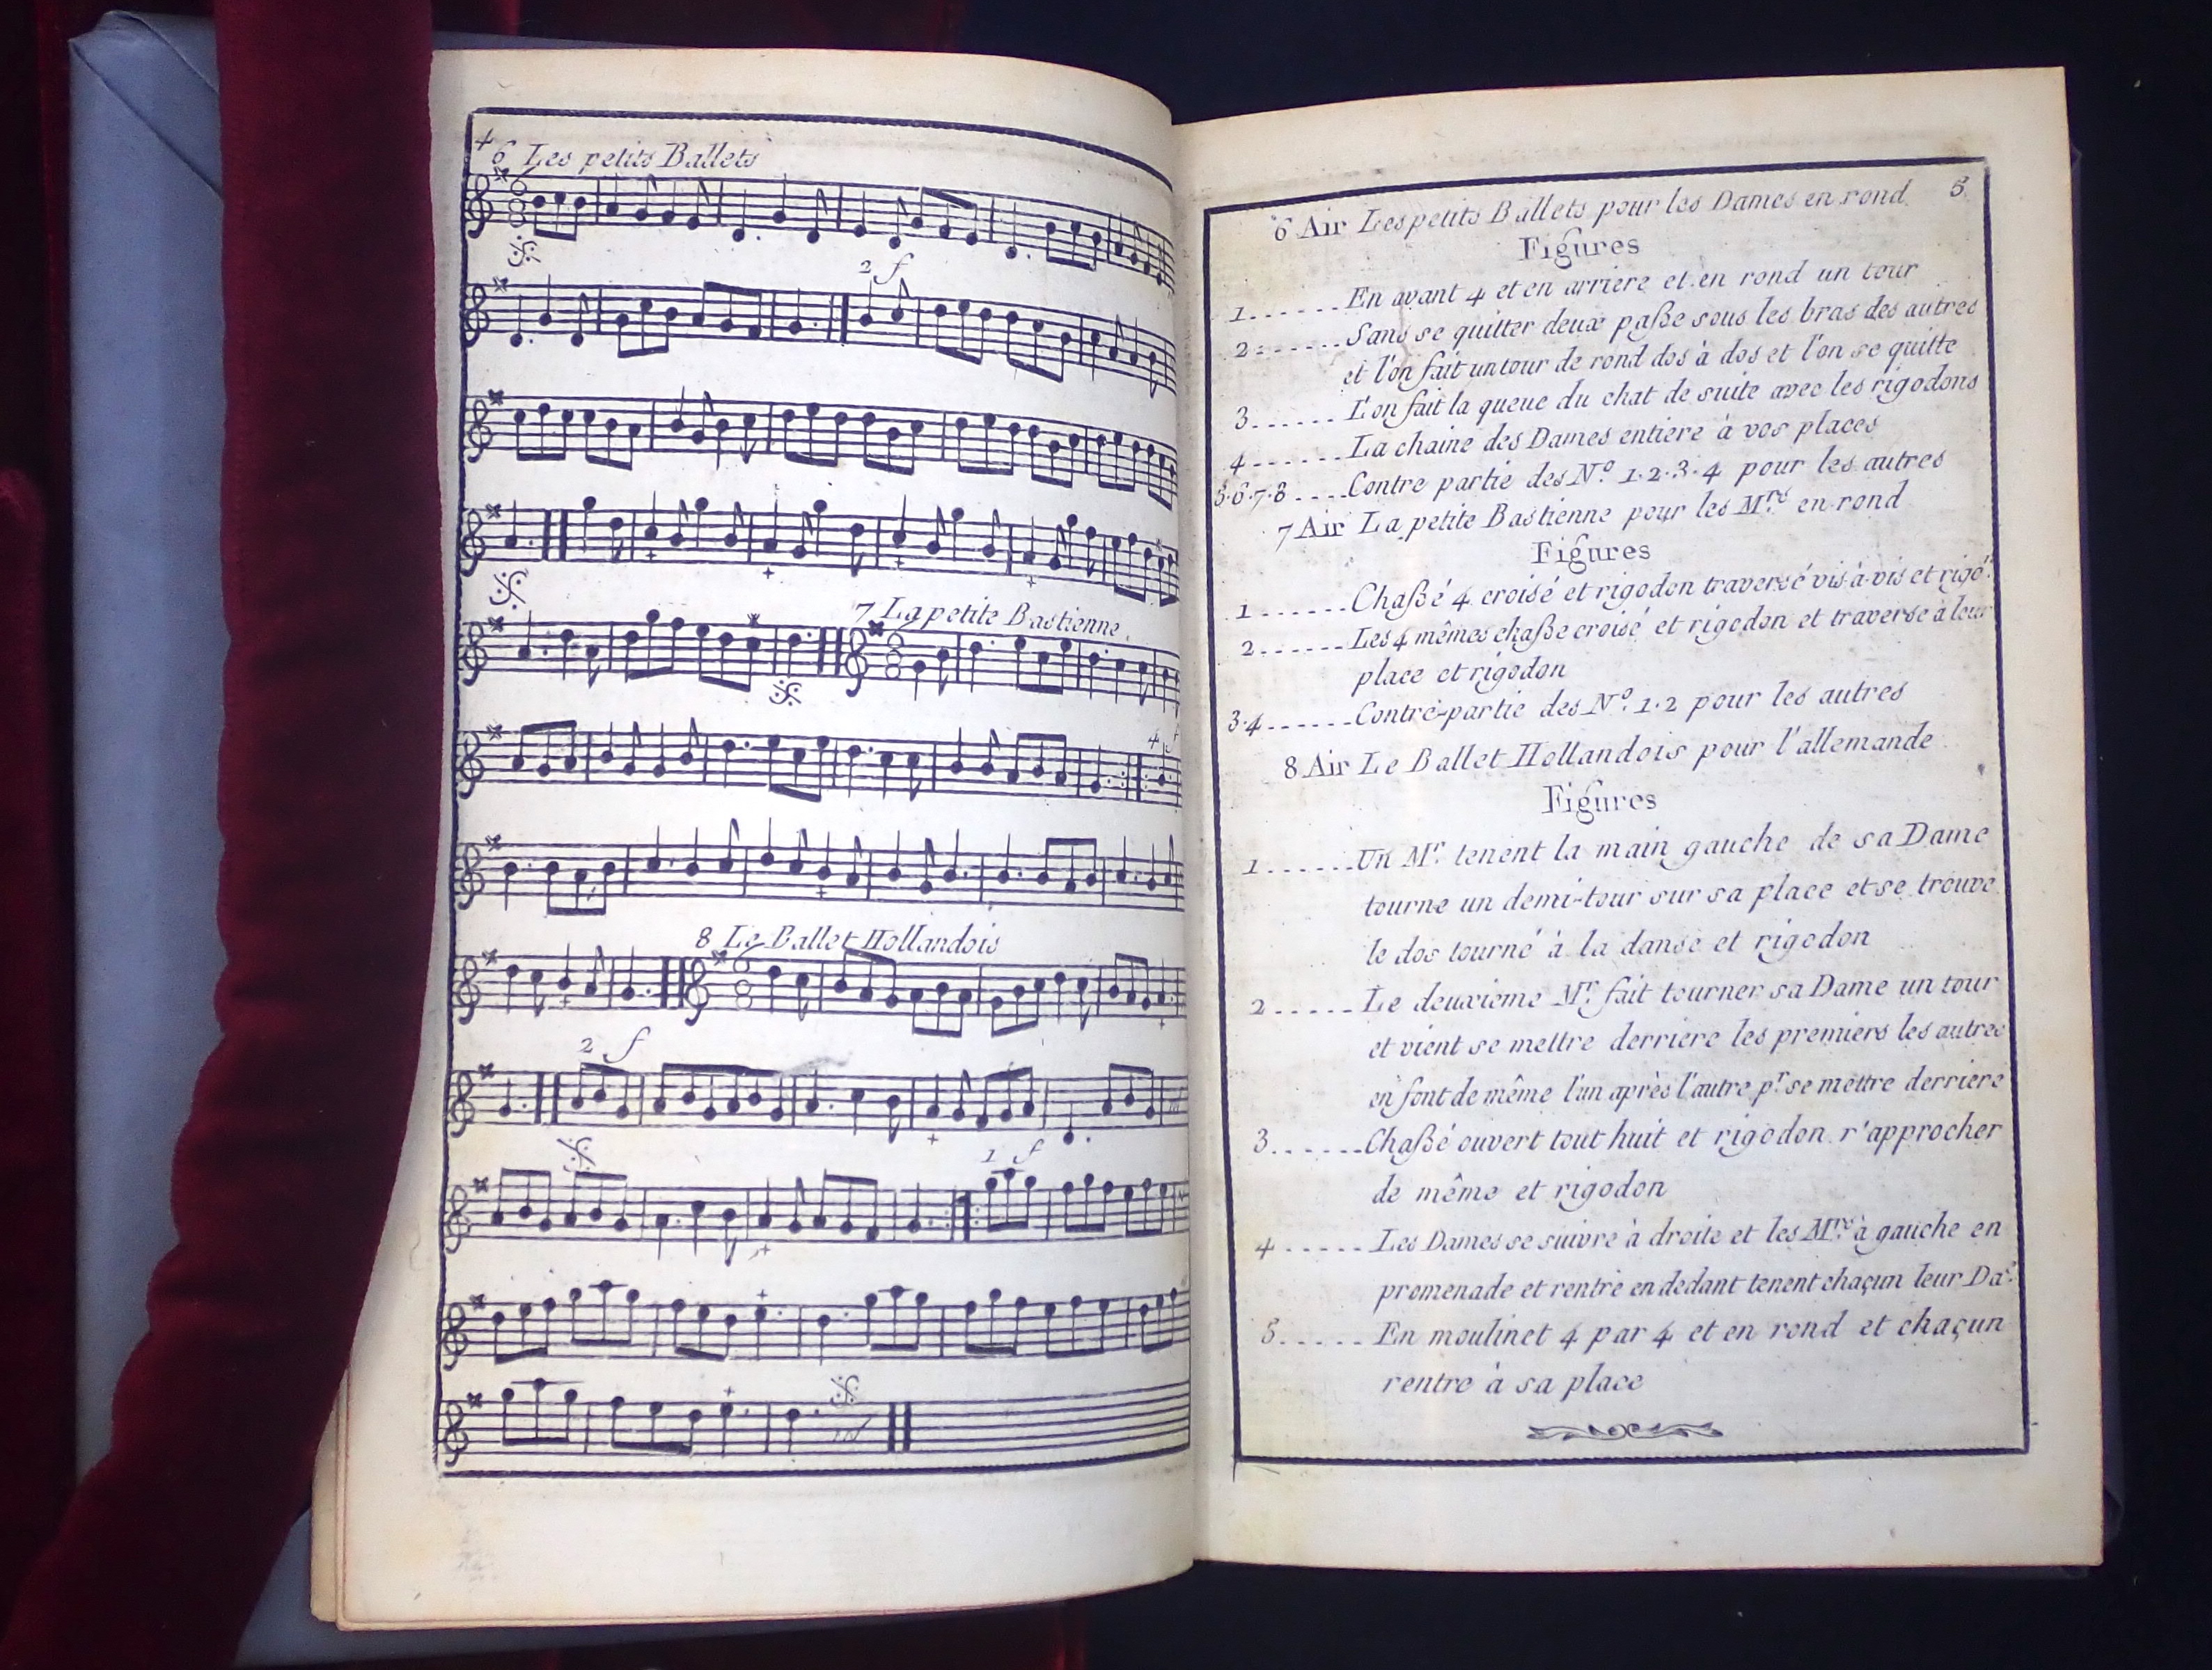 4
6 Les petits Ballets
2 f
7 La petite Bastienne.
4 f
8 Le Ballet Hollandois
2 f
1 f
5
6 Air Les petits Ballets pour les Dames en rond
Figures
1......En avant 4 et en arriere et en rond un tour
2......Sans se quitter deux paße sous les bras des autres
et l'on fait un tour de rond dos à dos et l'on se quitte
3......L'on fait la queue du chat de suite avec les rigodons
4......La chaine des Dames entiere à vos places
5.6.7.8....Contre partie des N.º 1.2.3.4 pour les autres
7 Air La petite Bastienne pour les M.rs en rond
Figures
1......Chaßé 4 croisé et rigodon traversé vis à vis et rigo.
2......Les 4 mêmes chaße croisé et rigodon et traverse à leur
place et rigodon
3.4......Contre-partie des N.º 1.2 pour les autres
8 Air Le Ballet Hollandois pour l'allemande
Figures
1......Un M.r tenent la main gauche de sa Dame
tourne un demi-tour sur sa place et se trouve
le dos tourné à la danse et rigodon
2.....Le deuxieme M.r fait tourner sa Dame un tour
et vient se mettre derriere les premiers les autres
en font de même l'un après l'autre p.r se mettre derriere
3......Chaßé ouvert tout huit et rigodon r'approcher
de même et rigodon
4.....Les Dames se suivre à droite et les M.rs à gauche en
promenade et rentre en dedant tenent chaçun leur Da.e
5.....En moulinet 4 par 4 et en rond et chaçun
rentre à sa place